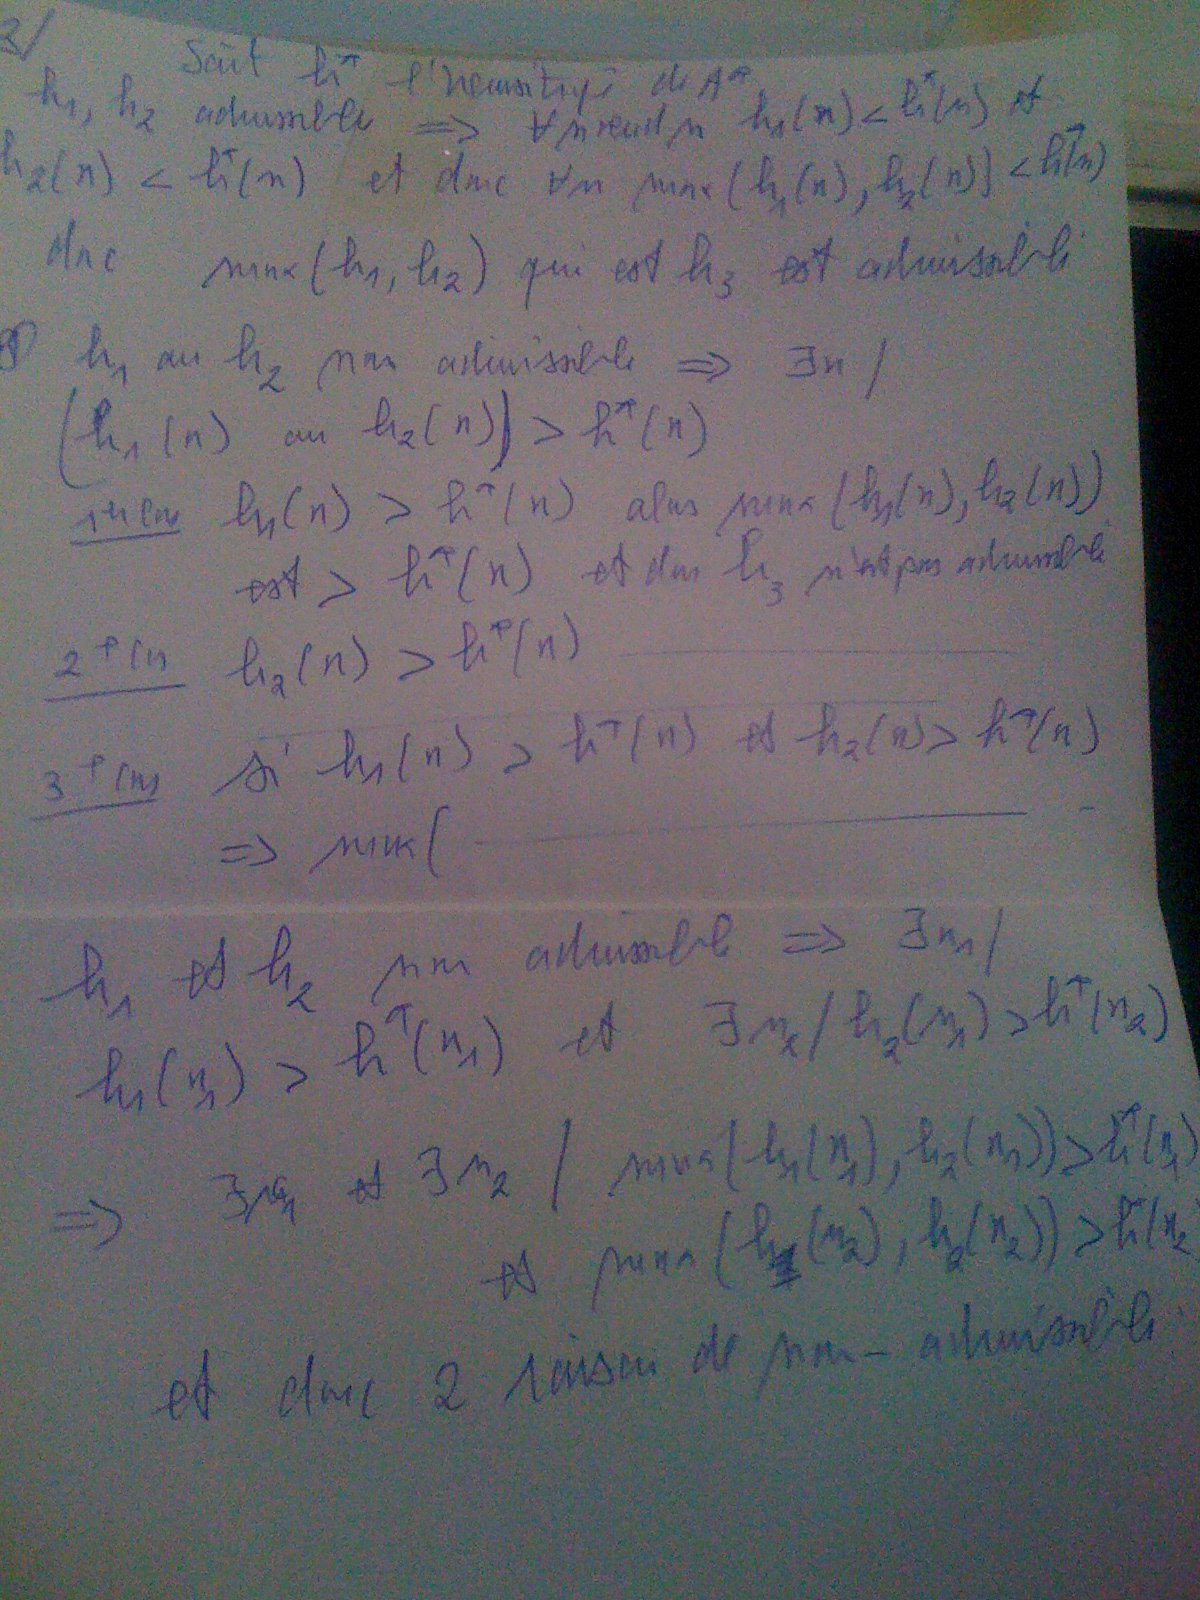 2/
Soit h* l'heuristique de A*
h1, h2 admissible ⇒ ∀ noeud n h1(n) < h*(n) et
h2(n) < h*(n) et donc ∀n max(h1(n), h2(n)) < h*(n)
donc max(h1, h2) qui est h3 est admissible
h1 ou h2 non admissible ⇒ ∃n /
(h1(n) ou h2(n)) > h*(n)
1er cas h1(n) > h*(n) alors max(h1(n), h2(n))
est > h*(n) et donc h3 n'est pas admissible
2e cas h2(n) > h*(n) ————
3e cas si h1(n) > h*(n) et h2(n) > h*(n)
⇒ max( ————
h1 et h2 non admissible ⇒ ∃n1 /
h1(n1) > h*(n1) et ∃n2 / h2(n1) > h*(n2)
⇒ ∃n1 et ∃n2 / max(h1(n1), h2(n1)) > h*(n1)
et max(h1(n2), h2(n2)) > h*(n2
et donc 2 raison de non-admissible